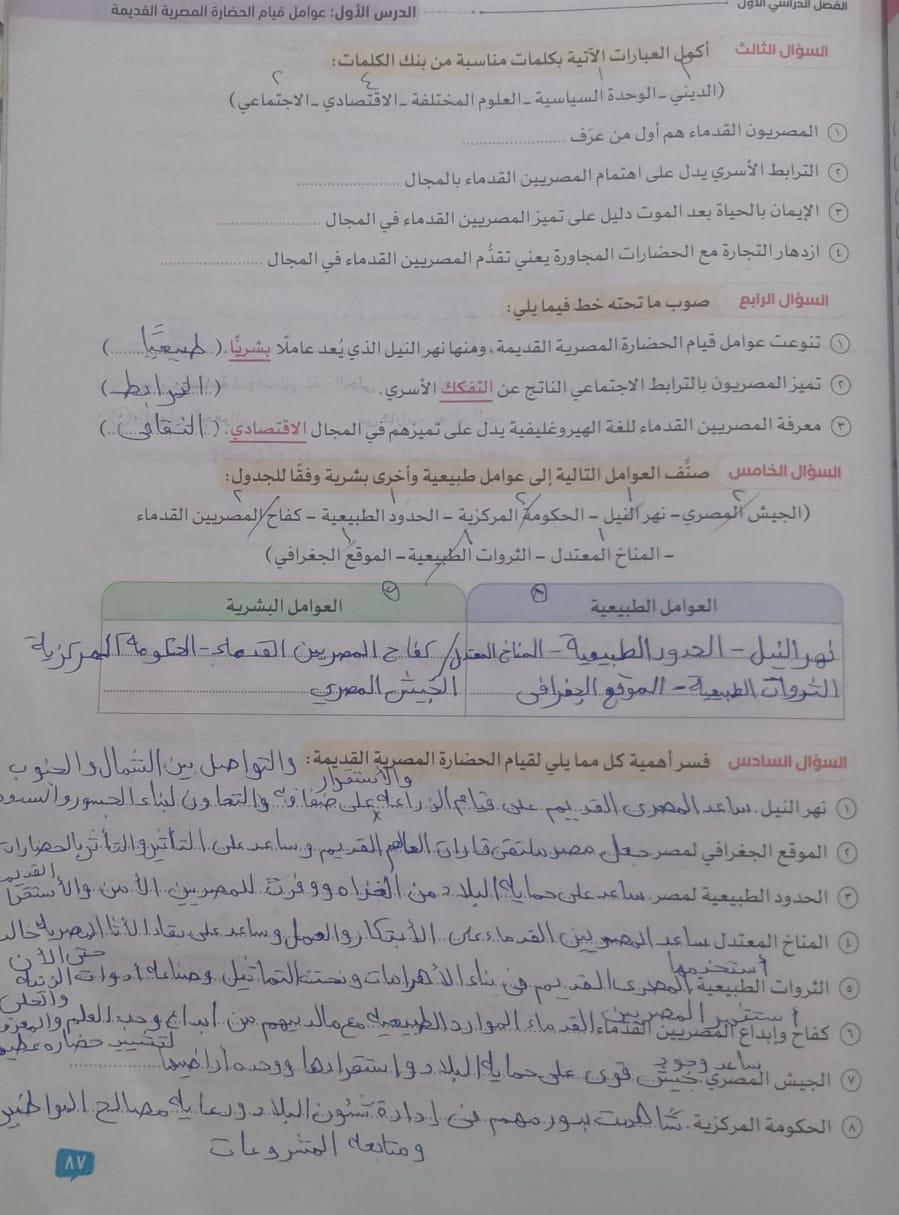 الفصل الدراسي الأول
الدرس الأول: عوامل قيام الحضارة المصرية القديمة
السؤال الثالث أكمل العبارات الآتية بكلمات مناسبة من بنك الكلمات:
٣ ١ ٤ ٢
(الديني - الوحدة السياسية - العلوم المختلفة - الاقتصادي - الاجتماعي)
١ المصريون القدماء هم أول من عرَف ....................
٢ الترابط الأسري يدل على اهتمام المصريين القدماء بالمجال ....................
٣ الإيمان بالحياة بعد الموت دليل على تميز المصريين القدماء في المجال ....................
٤ ازدهار التجارة مع الحضارات المجاورة يعني تقدُّم المصريين القدماء في المجال ....................
السؤال الرابع صوب ما تحته خط فيما يلي:
١ تنوعت عوامل قيام الحضارة المصرية القديمة، ومنها نهر النيل الذي يُعد عاملًا بشريًّا. (طبيعيًّا)
٢ تميز المصريون بالترابط الاجتماعي الناتج عن التفكك الأسري. (الترابط)
٣ معرفة المصريين القدماء للغة الهيروغليفية يدل على تميزهم في المجال الاقتصادي. (الثقافى)
السؤال الخامس صنِّف العوامل التالية إلى عوامل طبيعية وأخرى بشرية وفقًا للجدول:
(الجيش المصري - نهر النيل - الحكومة المركزية - الحدود الطبيعية - كفاح المصريين القدماء
- المناخ المعتدل - الثروات الطبيعية - الموقع الجغرافي)
العوامل الطبيعية ١ العوامل البشرية ٢
نهر النيل - الحدود الطبيعية - المناخ المعتدل / كفاح المصريين القدماء - الحكومة المركزية
الثروات الطبيعية - الموقع الجغرافى الجيش المصري
السؤال السادس فسر أهمية كل مما يلي لقيام الحضارة المصرية القديمة: والتواصل بين الشمال والجنوب
والأستقرار
١ نهر النيل. ساعد المصرى القديم على قيام الزراعة على ضفافه والتعاون لبناء الجسور والسدود
٢ الموقع الجغرافي لمصر جعل مصر ملتقى قارات العالم القديم وساعد على التأثير والتأثر بالحضارات
القديمة
٣ الحدود الطبيعية لمصر. ساعد على حماية البلاد من الغزاه ووفرت للمصريين الأمن والأستقرار
٤ المناخ المعتدل ساعد المصريين القدماء على الأبتكار والعمل وساعد على بقاء الأثار المصرية
حتى الأن
أستخدمها
٥ الثروات الطبيعية المصرى القديم فى بناء الأهرامات ونحت التماثيل وصناعة أدوات الزينة
والحلى
أستثمر المصريين
٦ كفاح وإبداع المصريين القدماء القدماء الموارد الطبيعية مع مالديهم من أبداع وحب العلم والمعرفة
لتشييد حضاره عظيمه
ساعد وجود
٧ الجيش المصري جيش قوى على حماية البلاد واستقرارها ووحدة أراضيها
٨ الحكومة المركزية. ساهمت بدور مهم فى إدارة شئون البلاد ورعاية مصالح المواطنين
ومتابعة المشروعات
٨٧